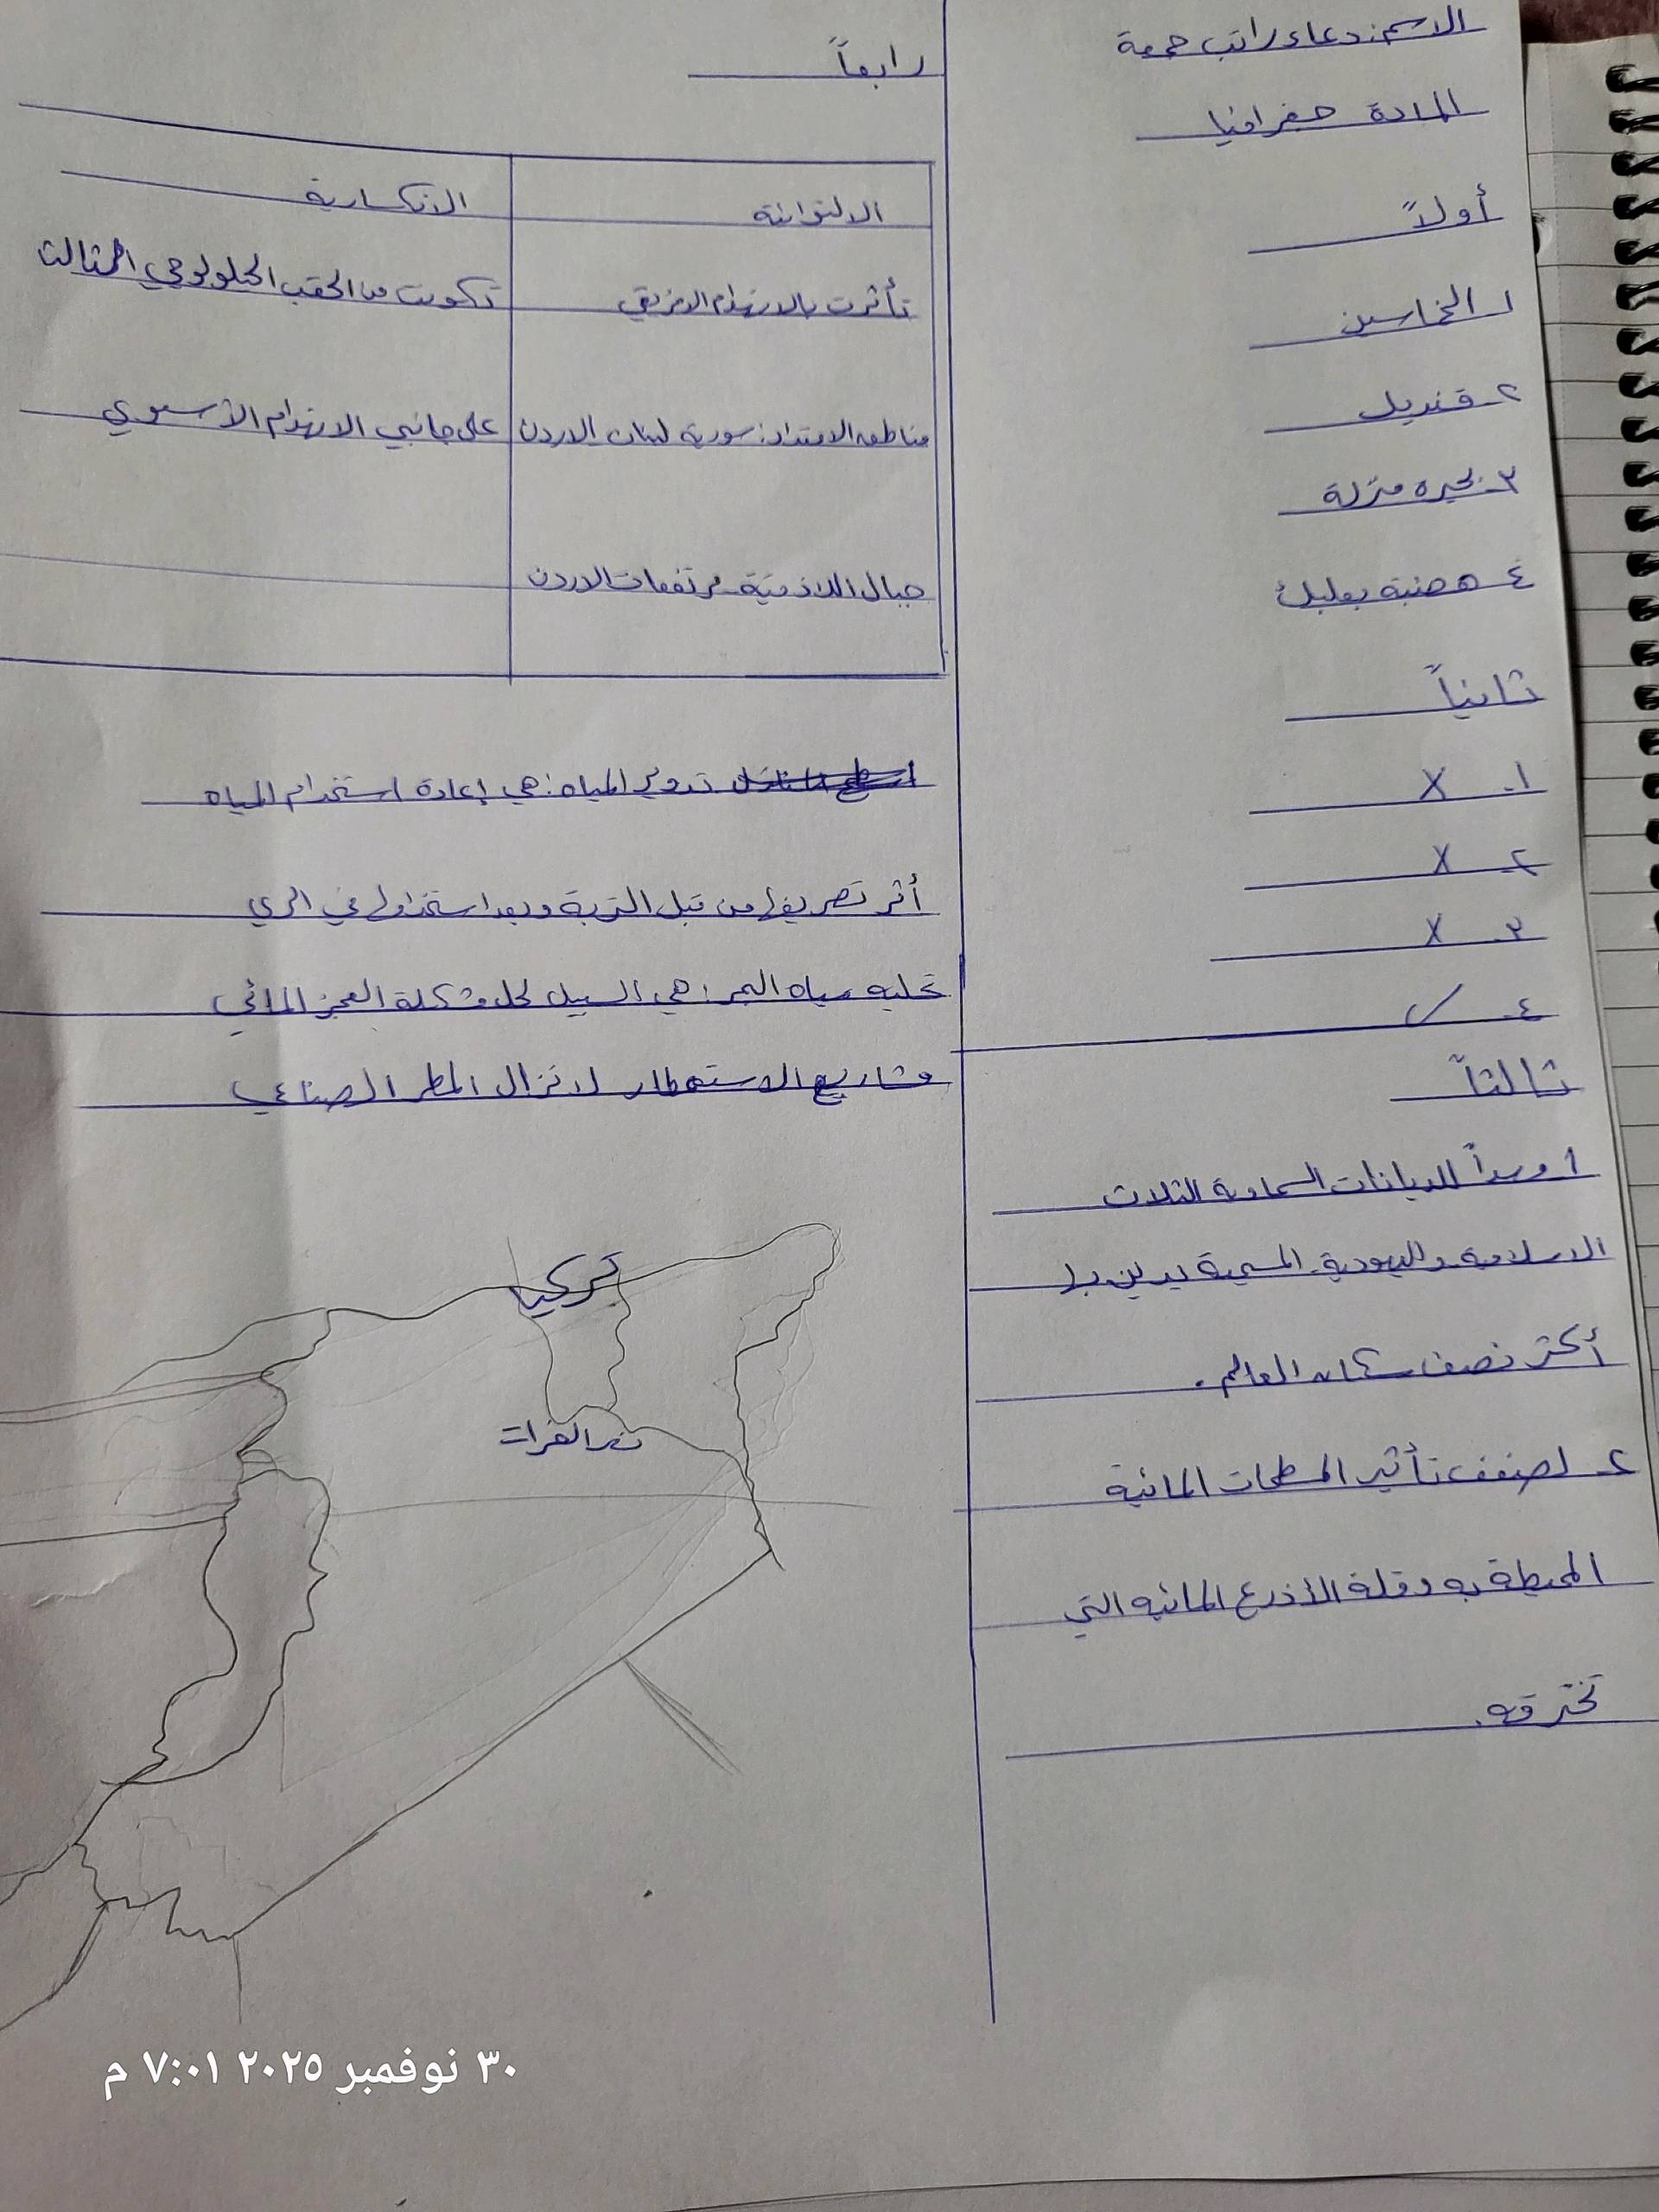 الاسم: دعاء راتب جمعة
المادة جغرافيا
أولاً
١ الخماسين
٢ قنديل
٣. بحيره منزلة
٤ هضبة بعلبك
ثانياً
١. X
٢. X
٣. X
٤. ✓
ثالثاً
للديانات السماوية الثلاث
الاسلامية واليهودية. المسيحية يدين بها
أكثر نصف سكان العالم.
٢. لضعف تأثير المسطحات المائية
المحيطة به وقلة الأذرع المائيه التي
تخترقه.
رابعاً
الالتوائية
الانكسارية
تأثرت بالانهدام الافريقي
تكونت من الحقب الجيولوجي الثالث
مناطق الامتداد: سورية لبنان الاردن
على جانبي الانهدام الآسيوي
جبال اللاذقية. مرتفعات الاردن
تدوير المياه: هي إعادة استخدام المياه
أثر تصريفها من قبل التربة وبعد استخدامها في الري
تحليه مياه البحر: هي السبيل لحل مشكلة العجز المائي
مشاريع الاستمطار لانزال المطر الصناعي
تركيا
نهر الفرات
٣٠ نوفمبر ٢٠٢٥ ٧:٠١ م